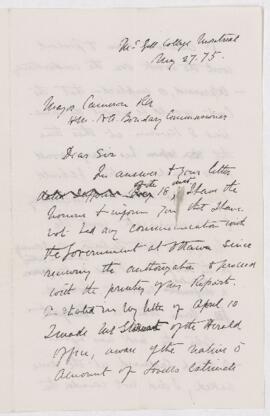 McGill College Montreal
May 27. 75.
Major Cameron RA
H.M. N.A. Boundary Commissioner
Dear Sir
In answer to your letter
of the 18 inst I have the
honour to inform you that I have
not had any communication with
the Government at Ottawa since
receiving the authorization to proceed
with the printing of my Report.
As stated in my letter of April 10
I made Mr of the Herald
Office, aware of the nature &
amount of estimate